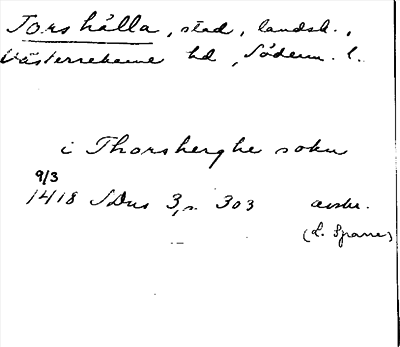 Torshälla, stad, landsk.,
Västerrekarne hd, Söderm. l.
i Thorsherghe sokn
9/3
1418 SDns 3, s. 303 avskr.
(L. Sparre)